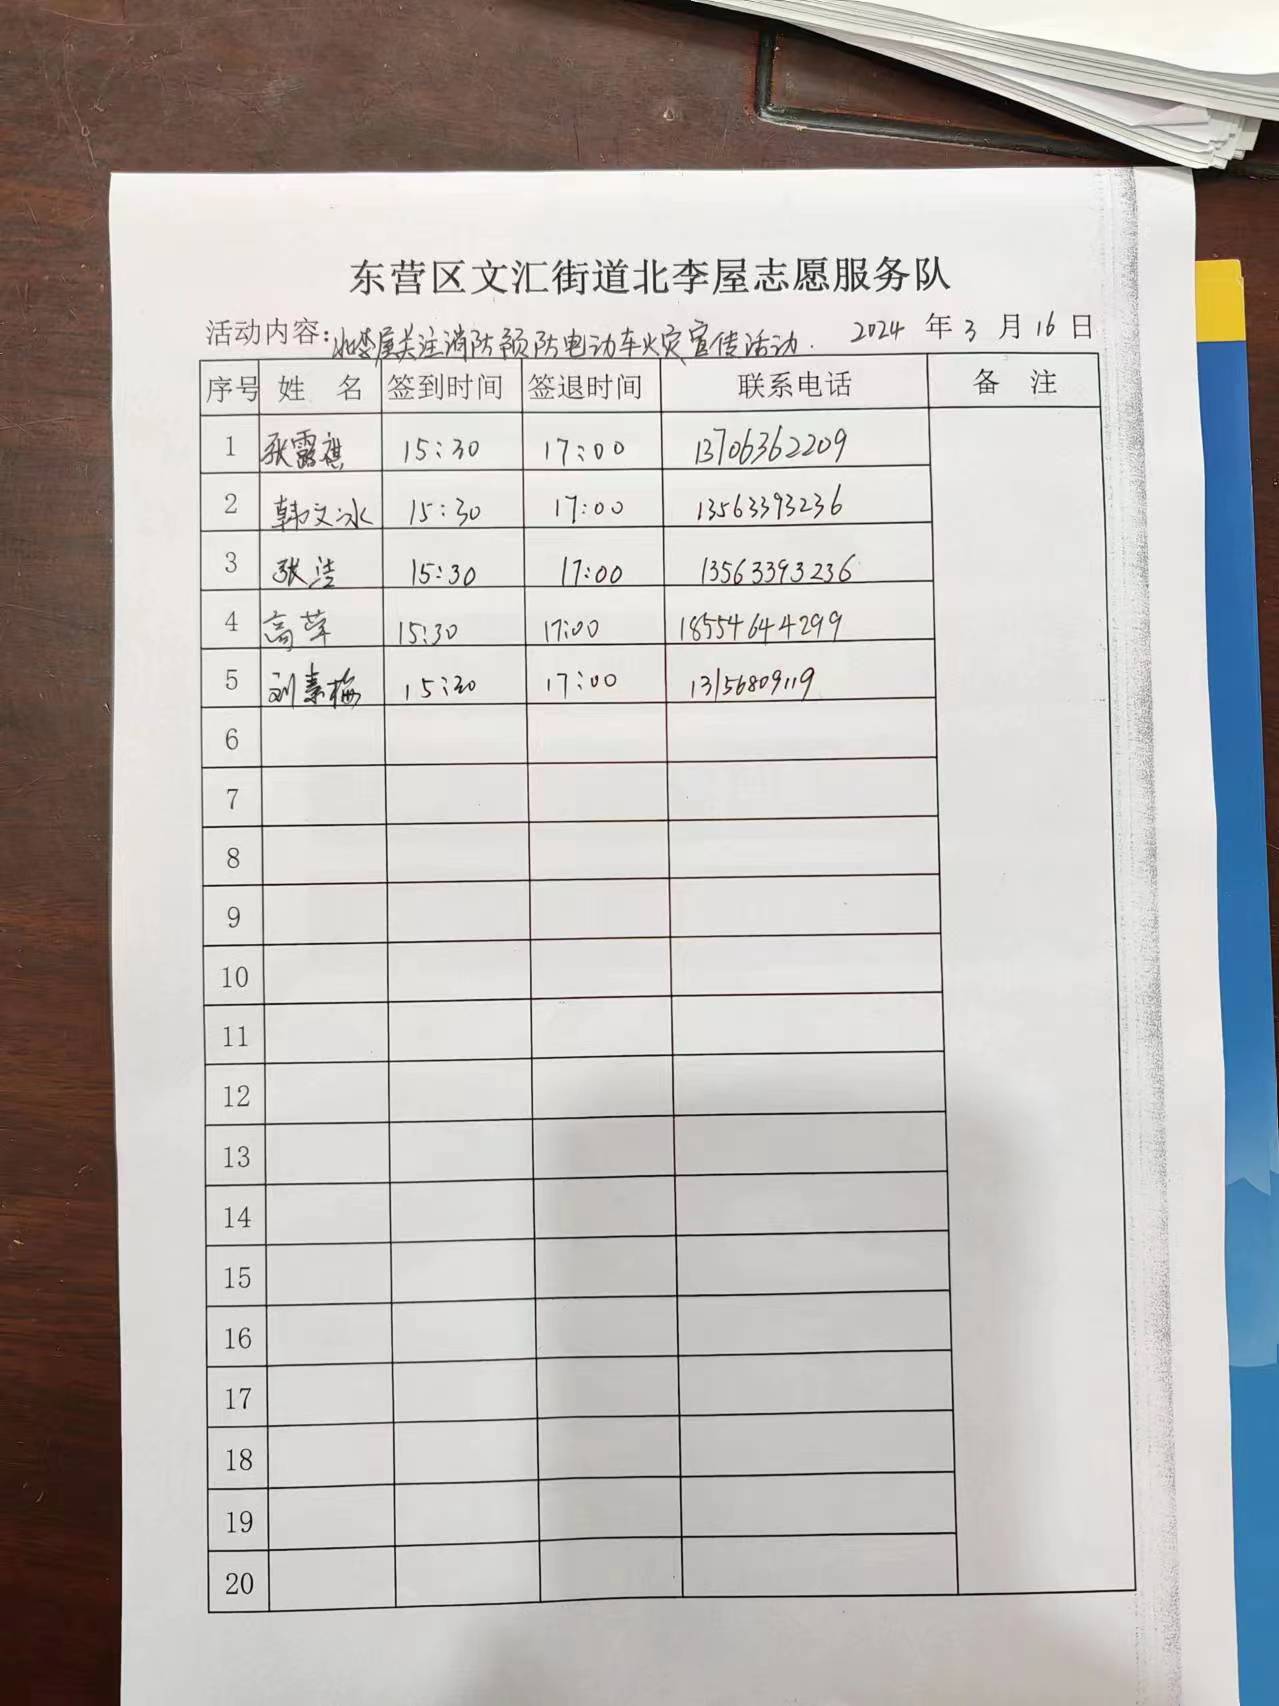 东营区文汇街道北李屋志愿服务队
活动内容：北李屋关注消防预防电动车火灾宣传活动. 2024 年 3 月 16 日
序号 姓 名 签到时间 签退时间 联系电话 备 注
1 耿露祺 15:30 17:00 13706362209
2 韩文冰 15:30 17:00 13563393236
3 张洁 15:30 17:00 13563393236
4 高萍 15:30 17:00 18554644299
5 刘素梅 15:30 17:00 13156809119
6
7
8
9
10
11
12
13
14
15
16
17
18
19
20